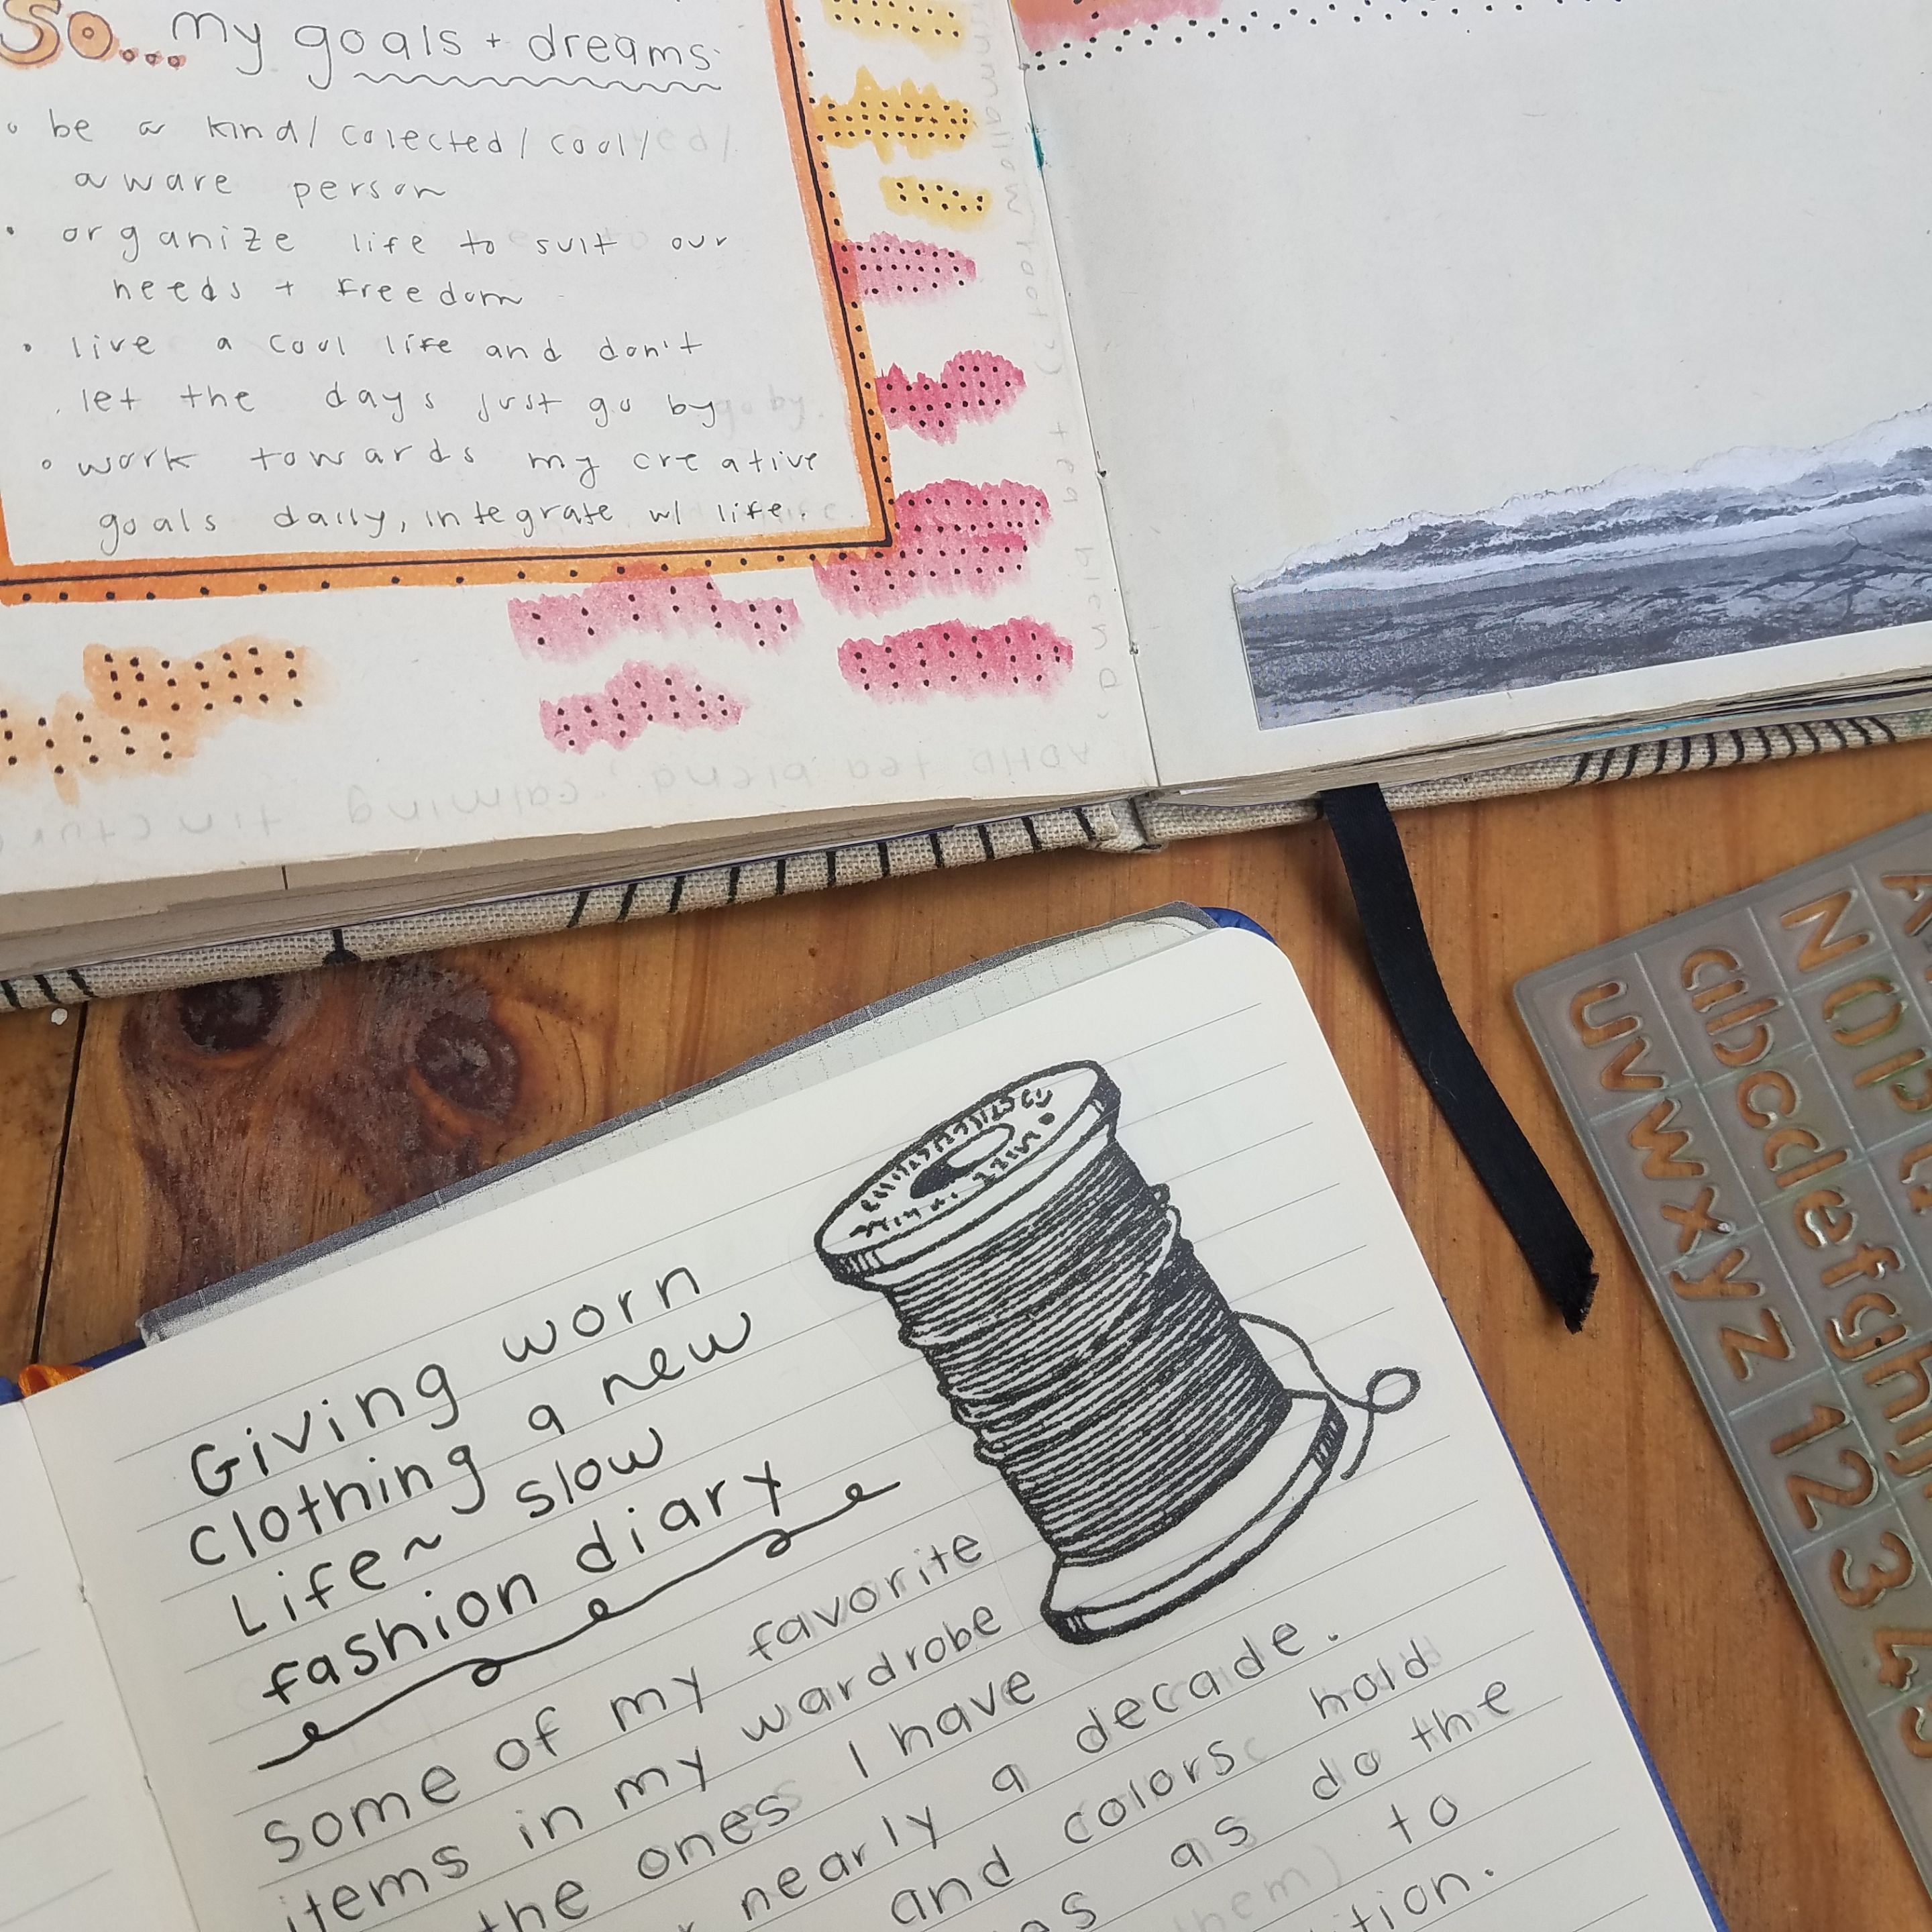 So... my goals + dreams
be a kind/colected/cool/
aware person
organize life to suit our
needs + freedom
live a cool life and don't
let the days just go by
work towards my creative
goals daily, integrate w/ life.
ADHD tea blend, calming
Giving worn
clothing a new
Life~ slow
fashion diary
Some of my favorite
items in my wardrobe
the ones I have
nearly a decade.
and colors hold
as do the
to
N O P
a b c d e f g h
u v w x y z 1 2 3 4 5